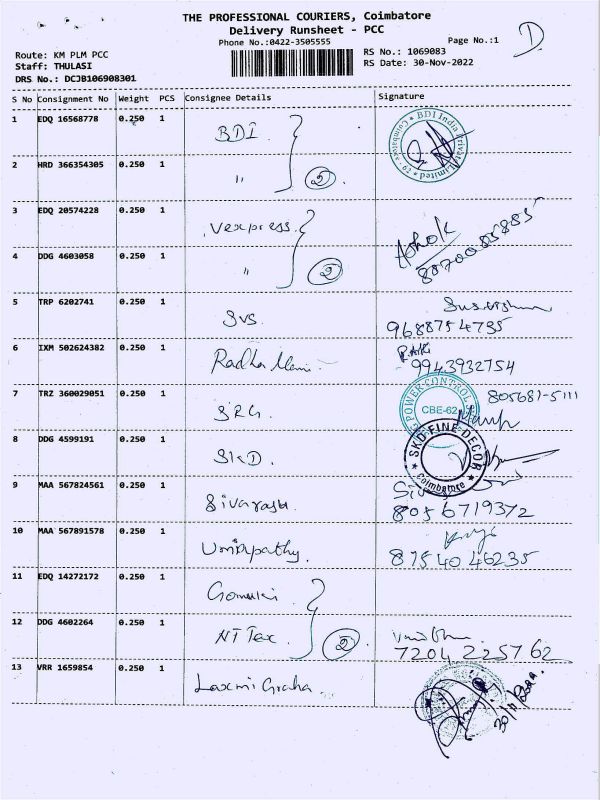 THE PROFESSIONAL COURIERS, Coimbatore
Delivery Runsheet - PCC
Phone No.:0422-3505555
Page No.:1 D
Route: KM PLM PCC
RS No.: 1069083
Staff: THULASI
RS Date: 30-Nov-2022
DRS No.: DCJB106908301
S No Consignment No Weight PCS Consignee Details Signature
1 EDQ 16568778 0.250 1 BDI BDI India Private Limited Coimbatore
2 HRD 366354305 0.250 1 " 2
3 EDQ 20574228 0.250 1 Vexpress Ashok
4 DDG 4603058 0.250 1 " 2
5 TRP 6202741 0.250 1 SVS 9688754735
6 IXM 502624382 0.250 1 Radha Mani 9943932754
7 TRZ 360029051 0.250 1 SRG POWER CONTROL CBE-62 805681-5111
8 DDG 4599191 0.250 1 SKD SKD FINE DECOR Coimbatore
9 MAA 567824561 0.250 1 8056719372
10 MAA 567891578 0.250 1 Umapathy 8754046235
11 EDQ 14272172 0.250 1
12 DDG 4602264 0.250 1 NT Tex 2 7204225762
13 VRR 1659854 0.250 1 Laxmi Graha